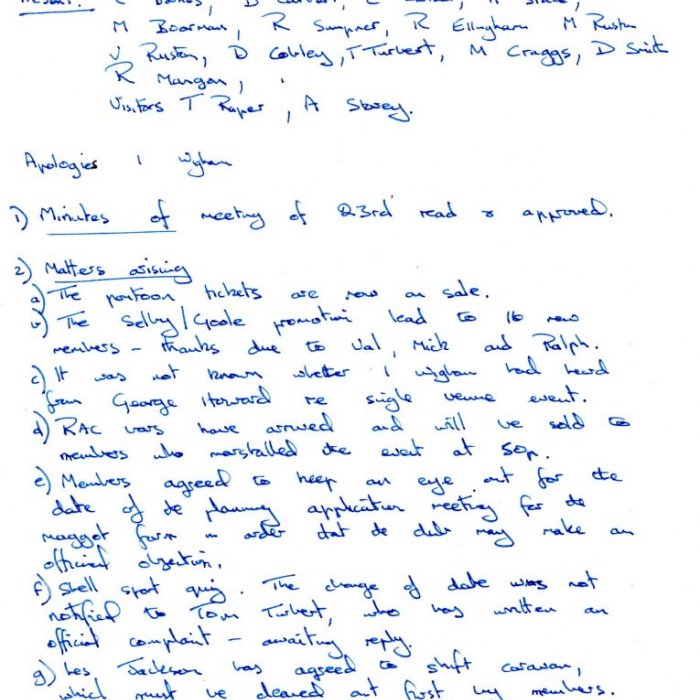 M Boorman, R Sumpner, R Ellingham M Ruston
V Ruston, D Cobley, T Turbert, M Craggs, D Smith
R Mangan,
Visitors T Raper, A Storey.
Apologies I Wigham
1) Minutes of meeting of 23rd read & approved.
2) Matters arising
a) The pontoon tickets are now on sale.
b) The Selby/Goole promotion lead to 16 new
members - thanks due to Val, Mick and Ralph.
c) It was not known whether I Wigham had heard
from George Howard re single venue event.
d) RAC bars have arrived and will be sold to
members who marshalled the event at 50p.
e) Members agreed to keep an eye out for the
date of the planning application meeting for the
maggot farm in order that the club may make an
official objection.
f) Shell sport quiz. The change of date was not
notified to Tom Turbert, who has written an
official complaint - awaiting reply.
g) Les Jackson has agreed to shift caravan,
which must be cleared out first by members.